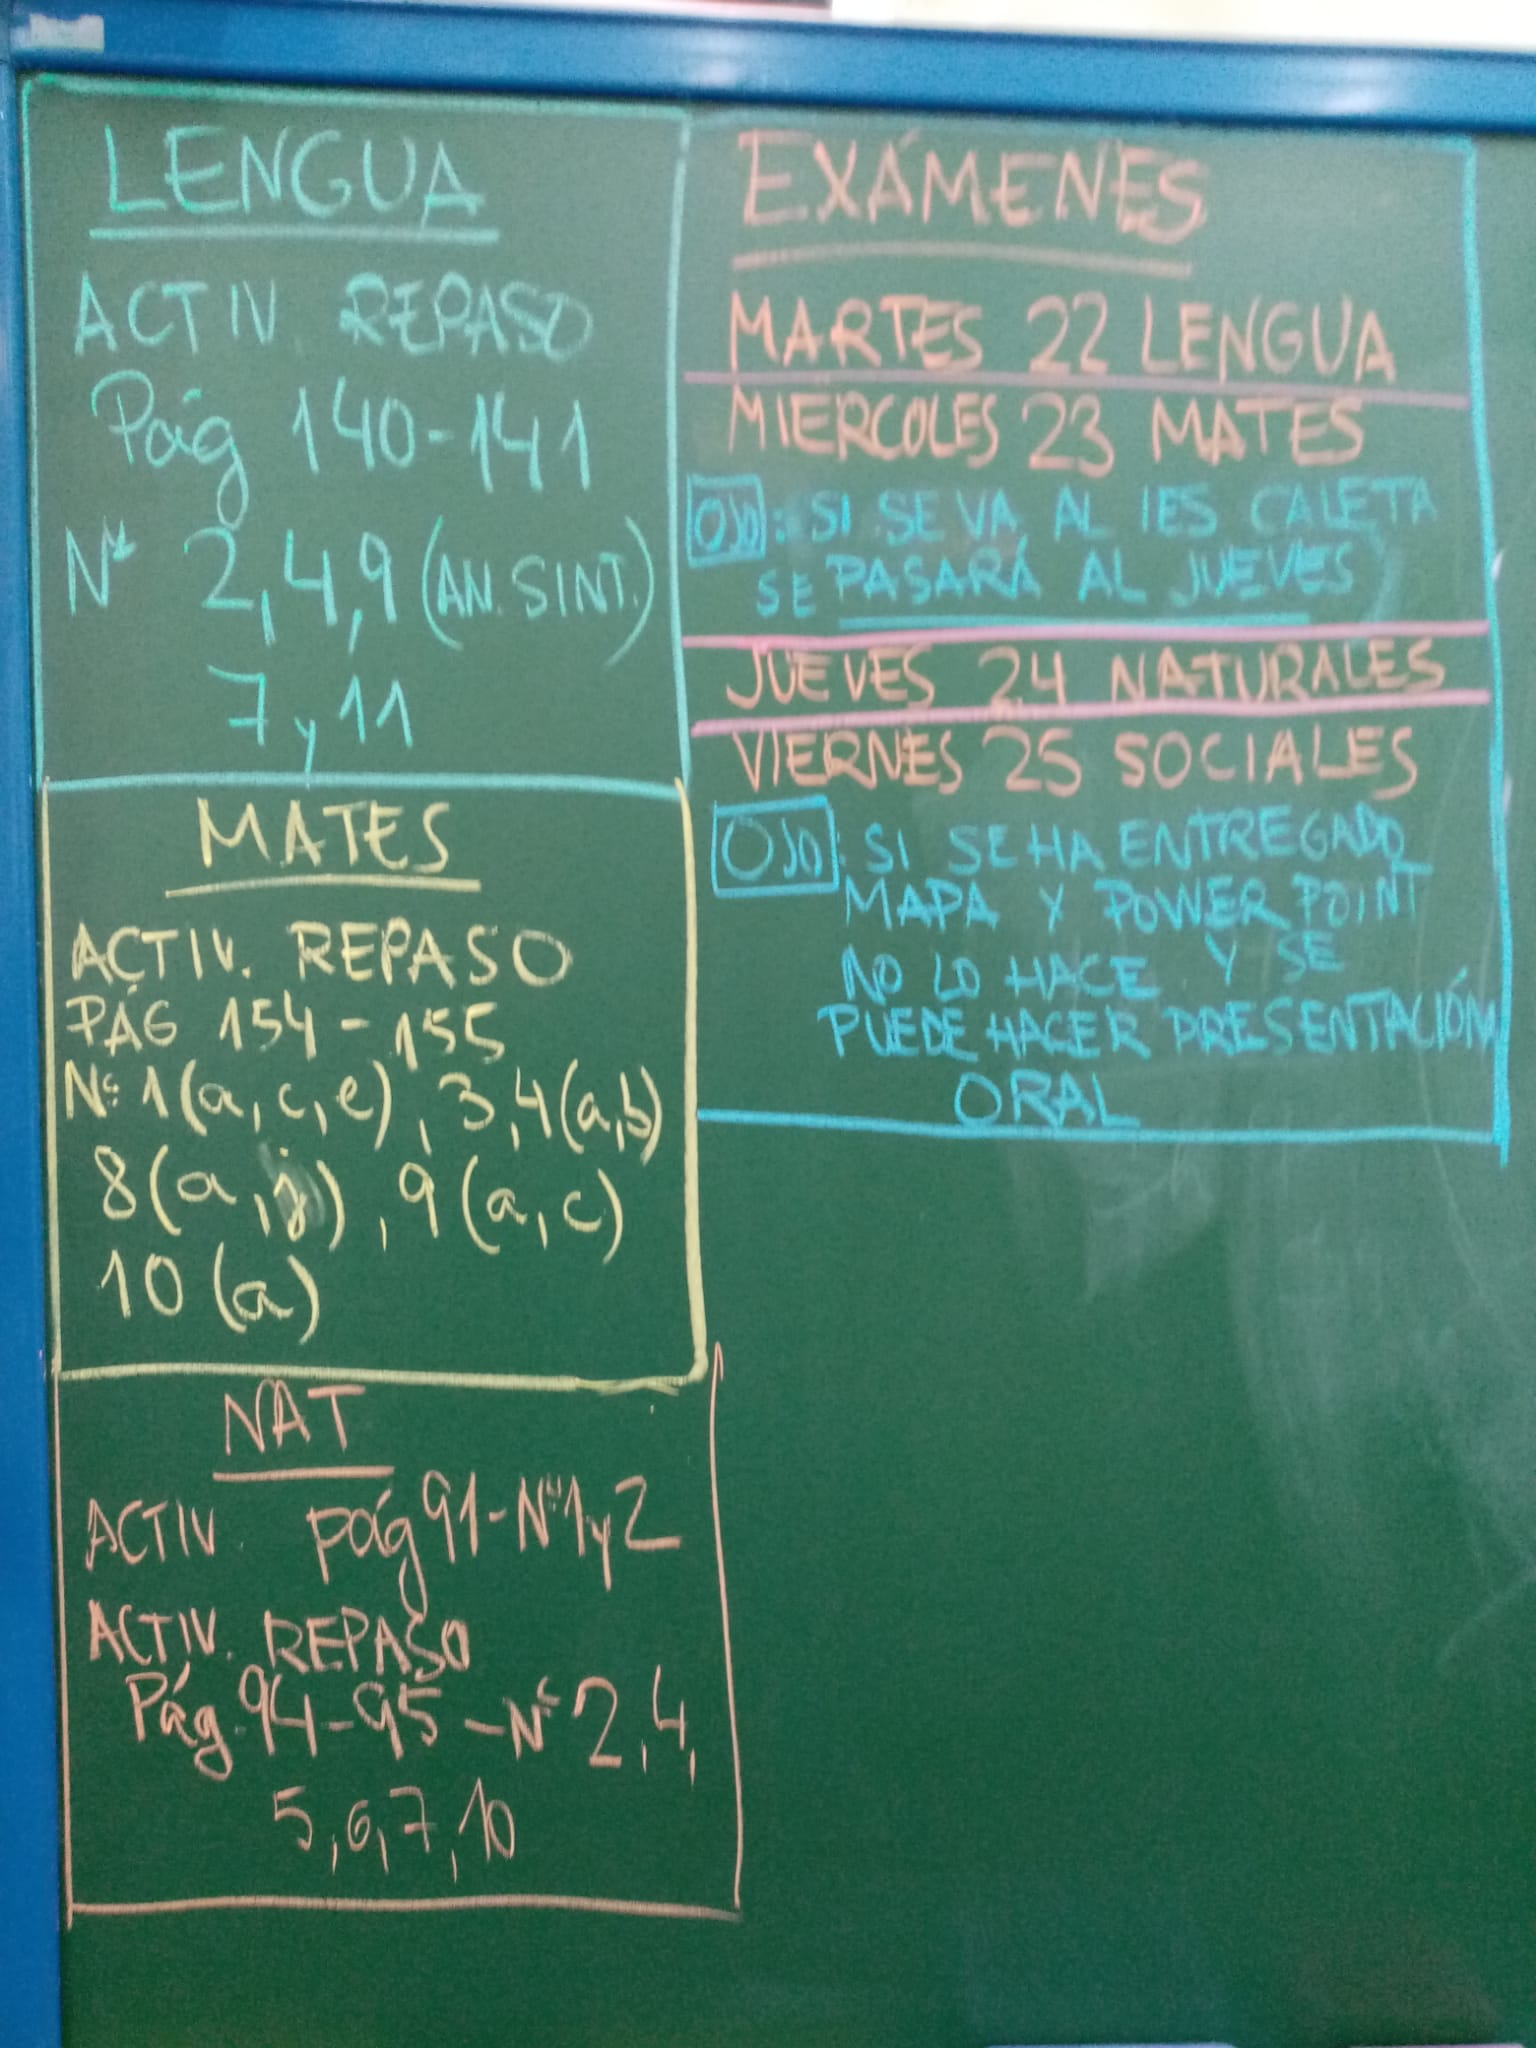 LENGUA
ACTIV. REPASO
Pág 140-141
Nº 2,4,9 (AN. SINT.)
7 y 11
MATES
ACTIV. REPASO
PÁG 154-155
Nº 1(a,c,e), 3,4(a,b)
8(a,j), 9(a,c)
10(a)
NAT
ACTIV. pág 91-Nº 1 y 2
ACTIV. REPASO
Pág. 94-95-Nº 2,4,
5,6,7,10
EXÁMENES
MARTES 22 LENGUA
MIERCOLES 23 MATES
OJO: SI SE VA AL IES CALETA
SE PASARÁ AL JUEVES
JUEVES 24 NATURALES
VIERNES 25 SOCIALES
OJO: SI SE HA ENTREGADO
MAPA Y POWER POINT
NO LO HACE Y SE
PUEDE HACER PRESENTACIÓN
ORAL